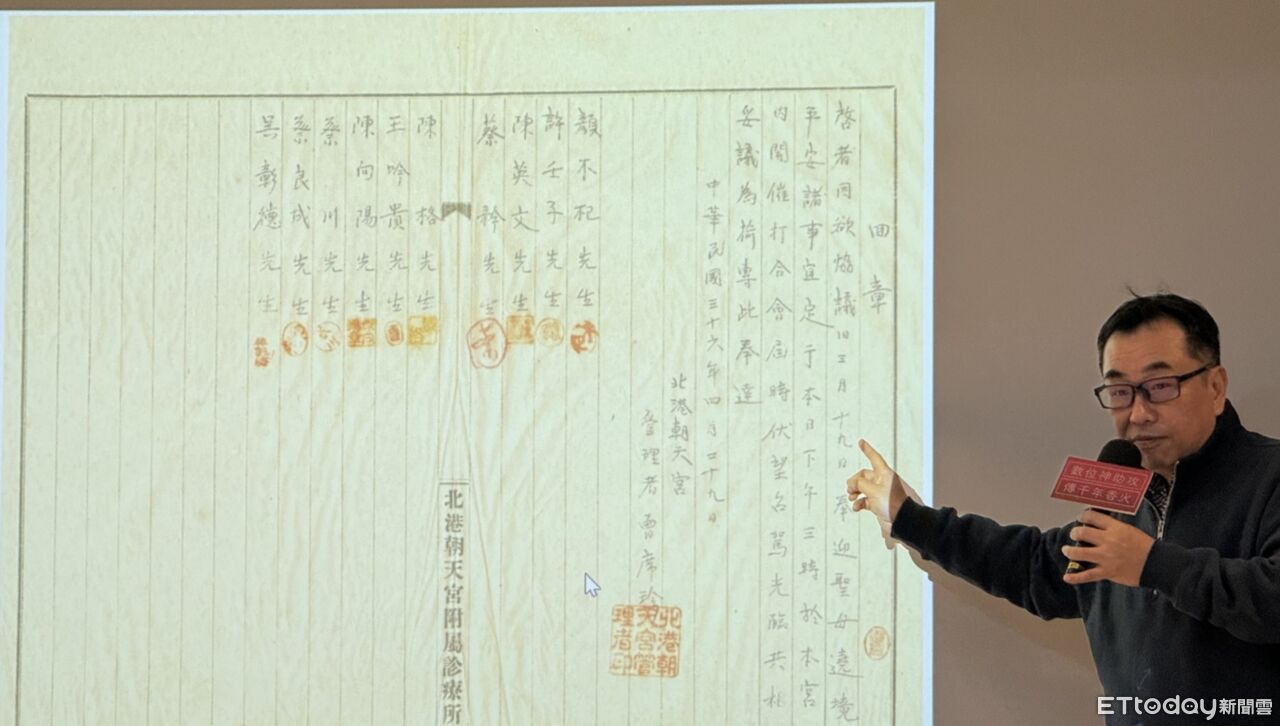 回章
啓者因欲協議旧三月十九日奉迎聖母遶境
平安諸事宜定于本日下午三時於本宮
内開催打合會屆時伏望台駕光臨共相
妥議為荷專此奉達
中華民國三十六年四月二十九日
北港朝天宮
管理者曹席珍
北港朝
天宮管
理者印
顏不杞先生
許壬子先生
陳英文先生
蔡矜先生
陳格先生
王吟貴先生
陳向陽先生
蔡川先生
蔡良成先生
吳彰德先生
北港朝天宮附屬診療所
數位神助攻
傳千年香火
ETtoday新聞雲